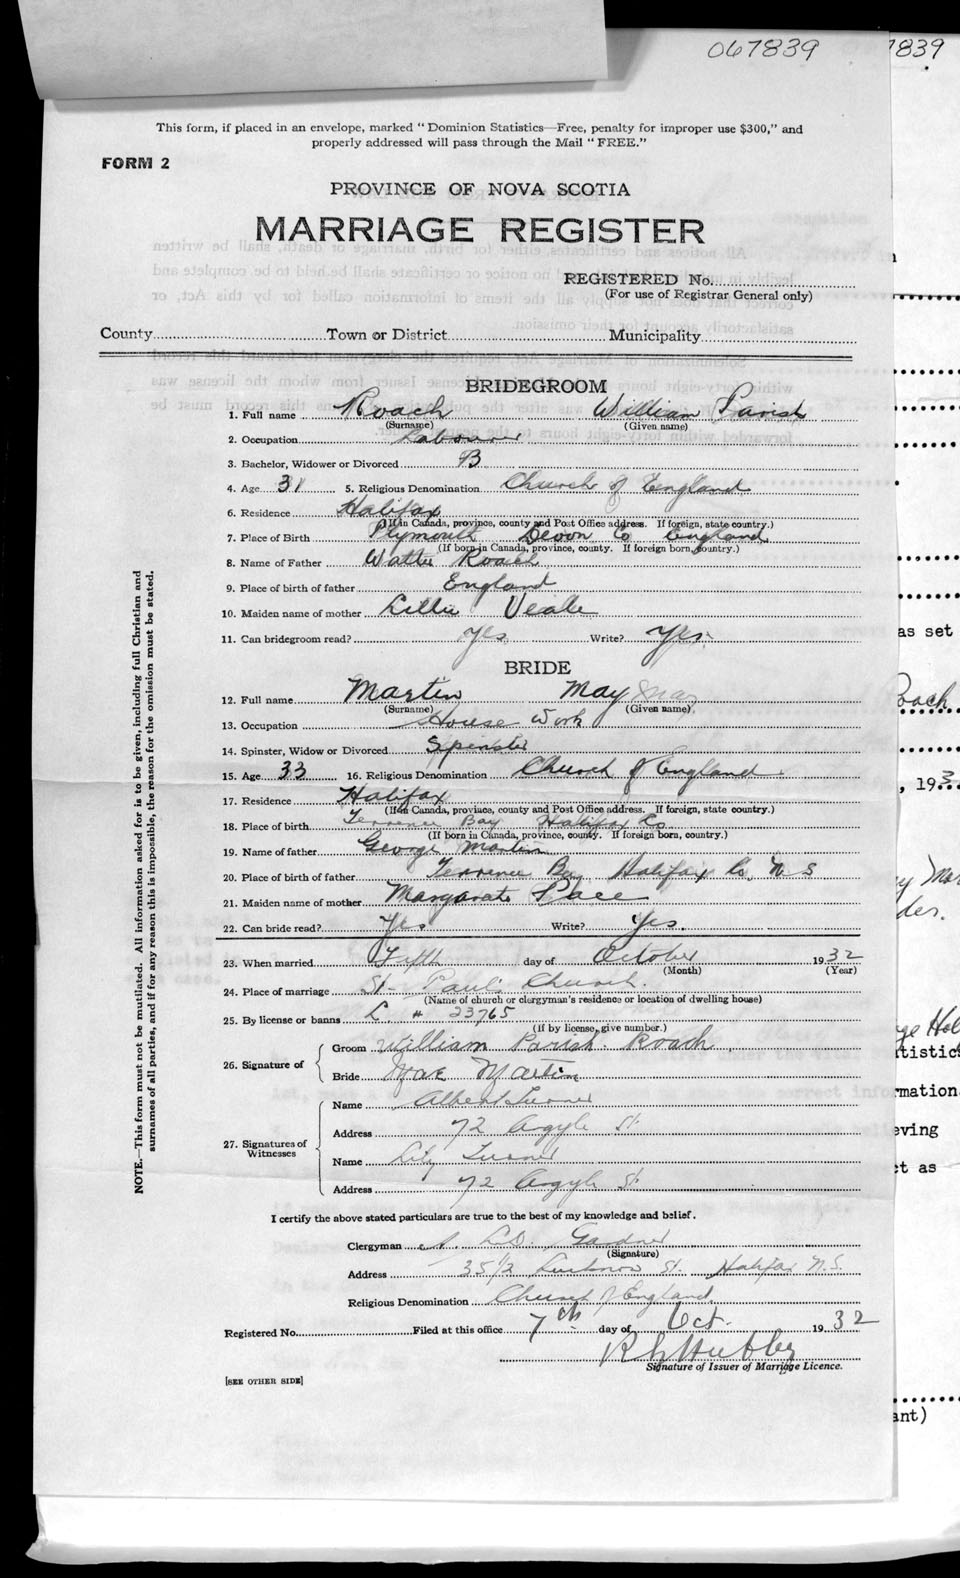 067839
7839
This form, if placed in an envelope, marked "Dominion Statistics—Free, penalty for improper use $300," and
properly addressed will pass through the Mail "FREE."
FORM 2
PROVINCE OF NOVA SCOTIA
MARRIAGE REGISTER
REGISTERED No.
(For use of Registrar General only)
County Town or District Municipality
BRIDEGROOM
1. Full name Roach William Parish
(Surname) (Given name)
2. Occupation Labourer
3. Bachelor, Widower or Divorced B
4. Age 31 5. Religious Denomination Church of England
6. Residence Halifax
(If in Canada, province, county and Post Office address. If foreign, state country.)
7. Place of Birth Plymouth Devon Co England
(If born in Canada, province, county. If foreign born, country.)
8. Name of Father Walter Roach
9. Place of birth of father England
10. Maiden name of mother Lillie Veale
11. Can bridegroom read? Yes Write? Yes.
BRIDE
12. Full name Martin May
(Surname) (Given name)
13. Occupation House Work
14. Spinster, Widow or Divorced Spinster
15. Age 33 16. Religious Denomination Church of England
17. Residence Halifax
(If in Canada, province, county and Post Office address. If foreign, state country.)
18. Place of birth Terrence Bay Halifax Co
(If born in Canada, province, county. If foreign born, country.)
19. Name of father George Martin
20. Place of birth of father Terrence Bay Halifax Co. N S
21. Maiden name of mother Margarate Pace
22. Can bride read? Yes Write? Yes.
23. When married Fifth day of October 1932
(Month) (Year)
24. Place of marriage St. Paul's Church.
(Name of church or clergyman's residence or location of dwelling house)
25. By license or banns L # 23765
(If by license, give number.)
26. Signature of
Groom William Parish Roach
Bride Mae Martin
27. Signatures of Witnesses
Name Albert Turner
Address 72 Argyle St
Name Lily Turner
Address 72 Argyle St
I certify the above stated particulars are true to the best of my knowledge and belief.
Clergyman Gardner
(Signature)
Address 35 1/2 St. Halifax N.S.
Religious Denomination Church of England
Registered No. Filed at this office 7th day of Oct. 1932
Signature of Issuer of Marriage Licence.
[SEE OTHER SIDE]
NOTE.—This form must not be mutilated. All information asked for is to be given, including full Christian and
surnames of all parties, and if for any reason this is impossible, the reason for the omission must be stated.
as set
Roach
, 193
ge Hol
tistics
rmation
eving
ct as
ant)